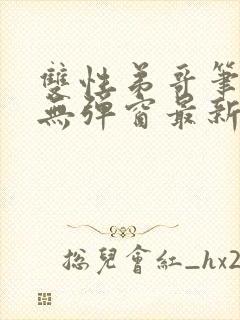 雙性弟哥筆
無彈窗最新
捴兒會紅_hx2